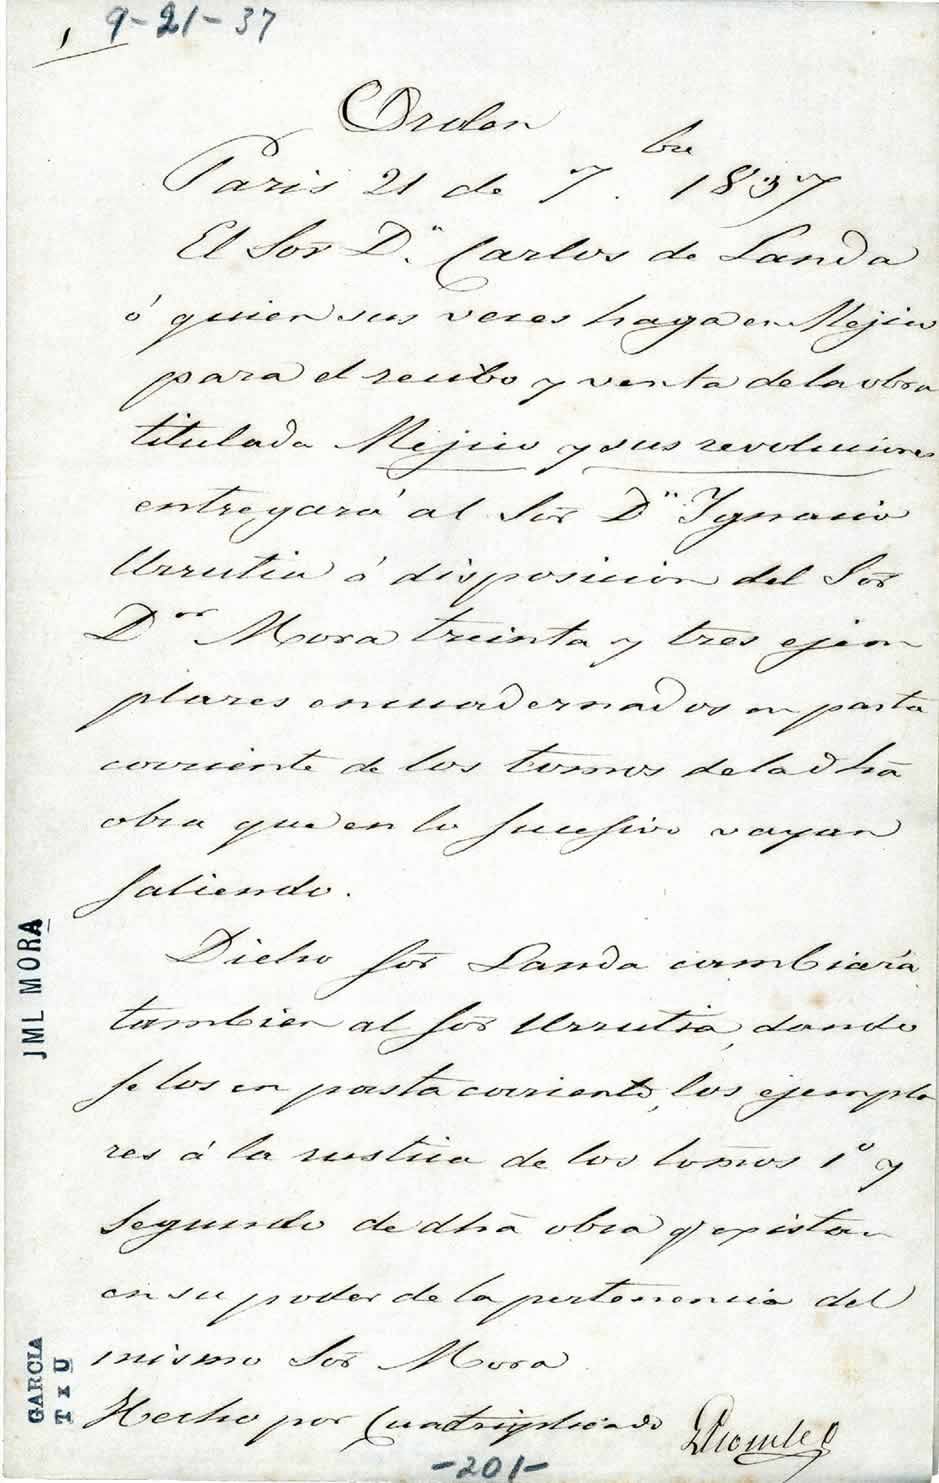 1 9-21-37
Orden
Paris 21 de 7.bre 1837
El Sor Dn. Carlos de Landa
ó quien sus veces haga en Mejico
para el recibo y venta de la obra
titulada Mejico y sus revoluciones
entregará al Sor Dn Ygnacio
Urrutia á disposicion del Sor
Dor Mora treinta y tres ejem
plares encuadernados en pasta
corriente de los tomos de la dhã
obra que en lo sucesivo vayan
saliendo.
Dicho Sor Landa cambiará
tambien al Sor Urrutia, dando
se los en pasta corriente, los ejempla
res á la rustica de los tomos 1o y
segundo de dhã obra q existan
en su poder de la pertenencia del
mismo Sor Mora
Hecho por Cuadriplicado
-201-
JML MORA
GARCIA
TxU